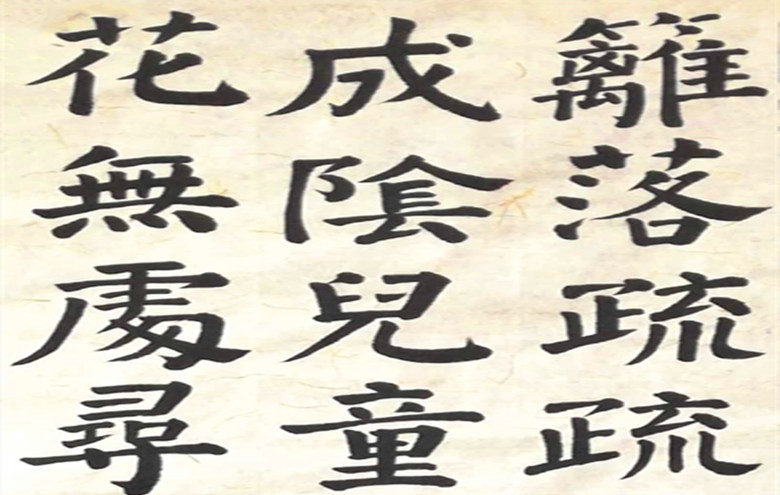 籬落疏疏
成陰兒童
花無處尋